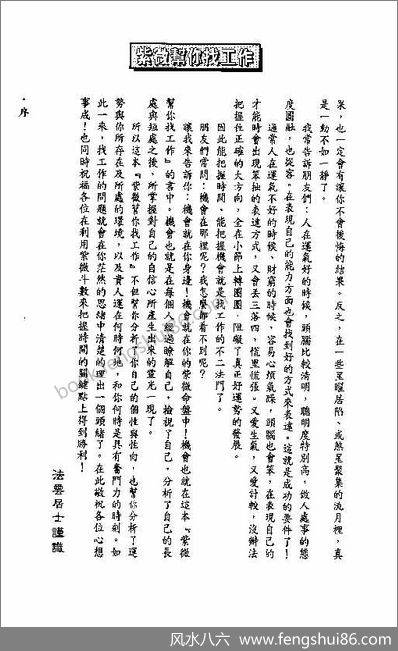 紫微幫你找工作
果,也一定會有讓你不會後悔的結果。反之,在一些星曜居陷、或煞星聚集的流月裡,真
是一動不如一靜了。
我常告訴朋友們:人在運氣好的時候,頭腦比較清明,聰明度特別高,做人處事的態
度圓融,也從容。在表現自己的能力方面也會找到好的方式來表達。這就是成功的要件了!
通常人在運氣不好的時候、財窮的時候、容易心煩氣躁,頭腦也會笨,在表現自己的
才能時會出現笨拙的表達方式,又會丟三落四,慌里慌張。又愛生氣、又愛計較,沒辦法
把握住正確的大方向,全在小節上轉圈圈,阻礙了真正好運勢的發展。
因此能把握時間、能把握機會就是找工作的不二法門了。
朋友們常問:機會在那裡呢?我怎麼都看不到呢?
讓我來告訴你:機會就在你身邊!機會就在你的紫微命盤中!機會也就在這本『紫微
幫你找工作』的書中。機會也就是在每個人經過瞭解自己,檢視了自己,分析了自己的長
處與短處之後、所掌握對自己的自信心所產生出來的靈光一現了。
所以這本『紫微幫你找工作』不但幫你分析了你自己的個性與性向,也幫你分析了運
勢與你所存在及所處的環境,以及貴人運在何時何地,和你何時是具有奮鬥力的時刻。如
此一來,找工作的問題就會在你茫然的思緒中清楚的理出一個頭緒了。在此敬祝各位心想
事成!也同時祝福各位在利用紫微斗數來把握時間的關鍵點上得到勝利!
法雲居士謹識
・序
风水八六 - www.fengshui86.com